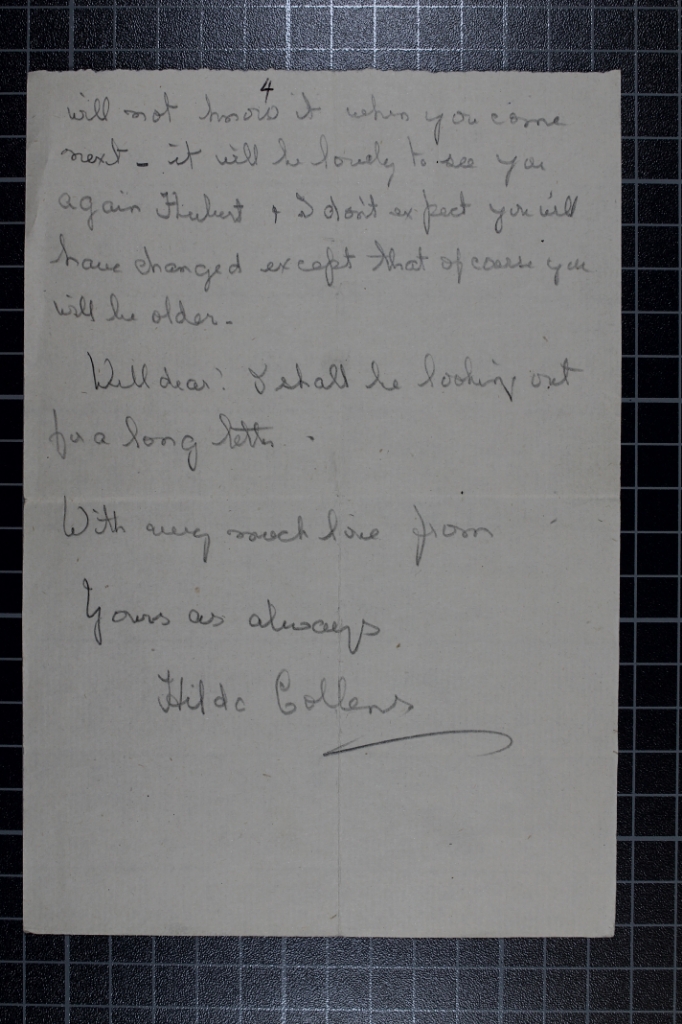 4
will not know it when you come
next - it will be lovely to see you
again Hubert & I don't expect you will
have changed except that of course you
will be older -
Well dear! I shall be looking out
for a long letter .
With very much love from
Yours as always.
Hilda Collens